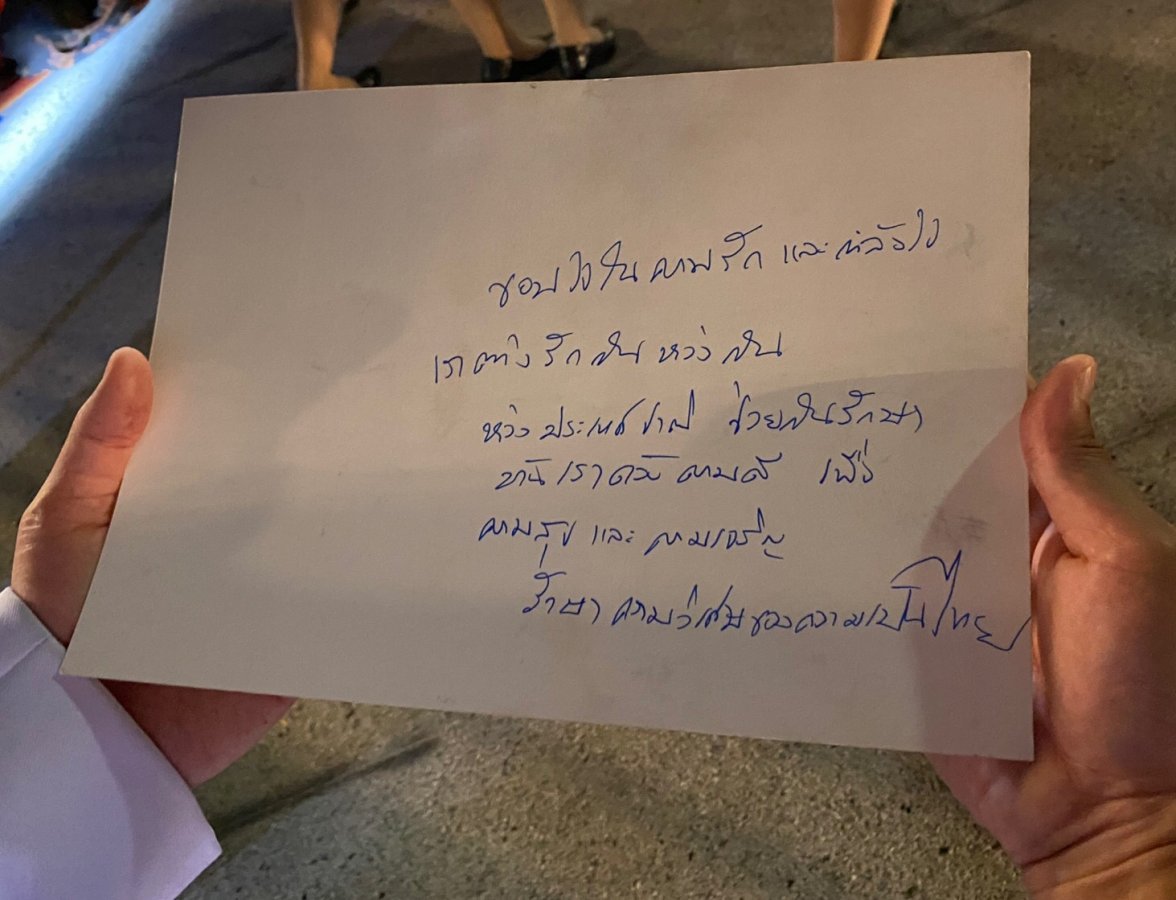 ขอบใจในความรักและกำลังใจ
เราต่างรักกันห่วงกัน
ห่วงประเทศชาติ ช่วยกันรักษา
บ้านเราด้วยความดี เพื่อ
ความสุข และ ความเจริญ
รักษาความวิเศษของความเป็นไทย